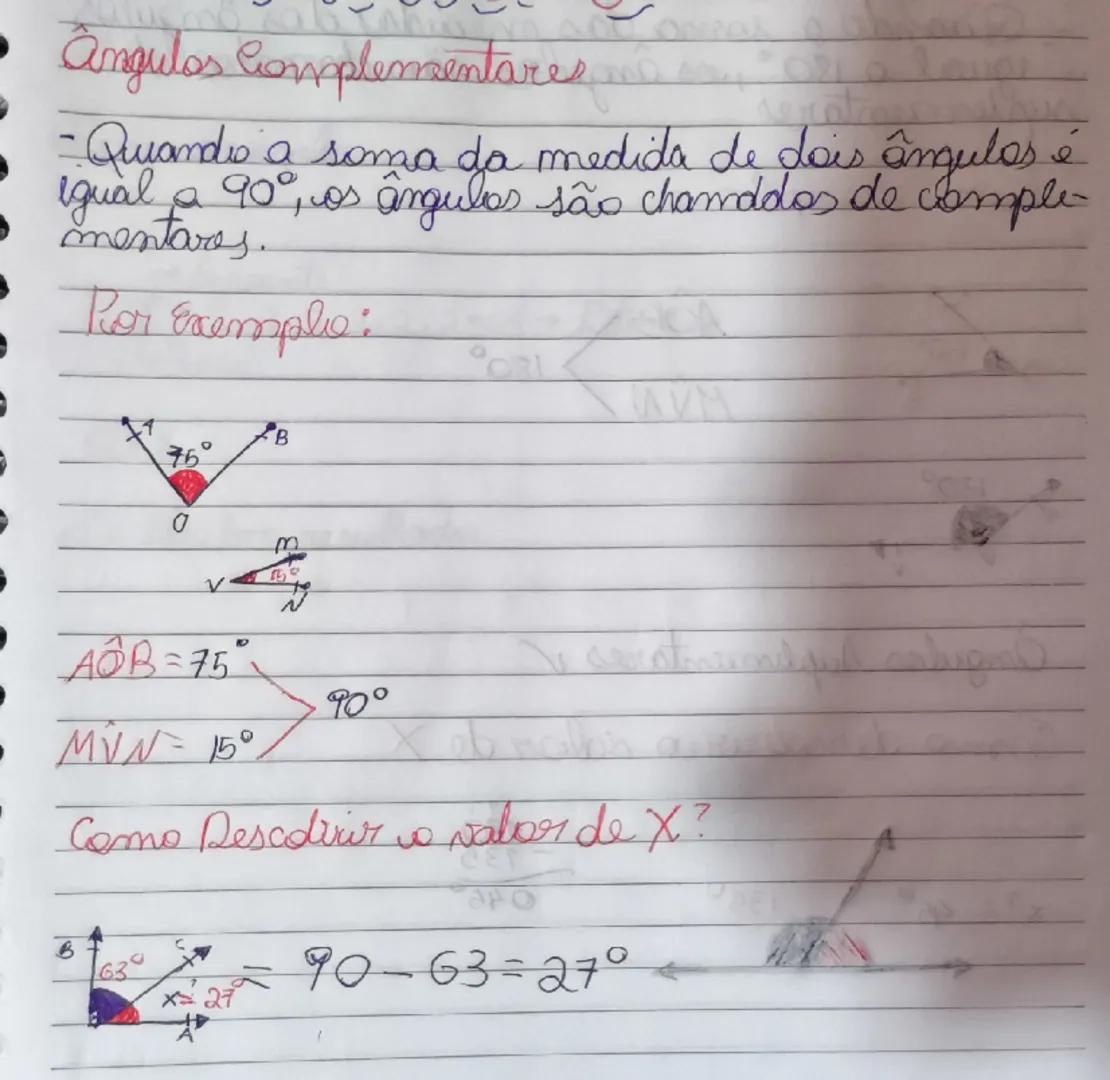 Ângulos Complementares
- Quando a soma da medida de dois ângulos é
igual a 90°, os ângulos são chamddos de comple-
mentares.
Por Exemplo:
A
75°
B
O
M
V 15°
N
AÔB = 75°
90°
MV̂N = 15°
Como Descobrir o valor de X?
B
63°
C
x = 27° = 90 - 63 = 27°
A